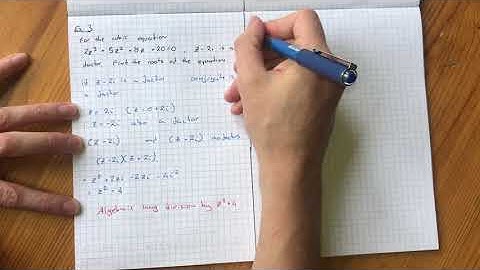 Ex 3
For the cubic equation
2z³ + 5z² + 8z + 20=0, z-2i is a
factor. Find the roots of the equation.
if z-2i is a factor conjugate
a factor
z = 2i (z = 0+2i)
z = -2i also a factor
(z-2i) and (z+2i)
(z-2i)(z+2i)
= z² + 2zi - 2zi - 4i²
= z² + 4
Algebraic long division by z²+4